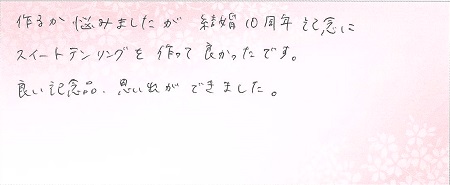 作るか悩みましたが 結婚10周年記念に
スイートテンリングを作って良かったです。
良い記念品、思い出ができました。